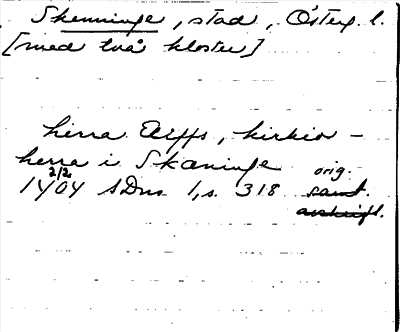 Skenninge, stad, Österg. l.
[med två kloster]
herra Ælffs, kirkio-
herra i Skæninge orig.
1404 2/2 SDns 1, s. 318 samt.
avskrift.